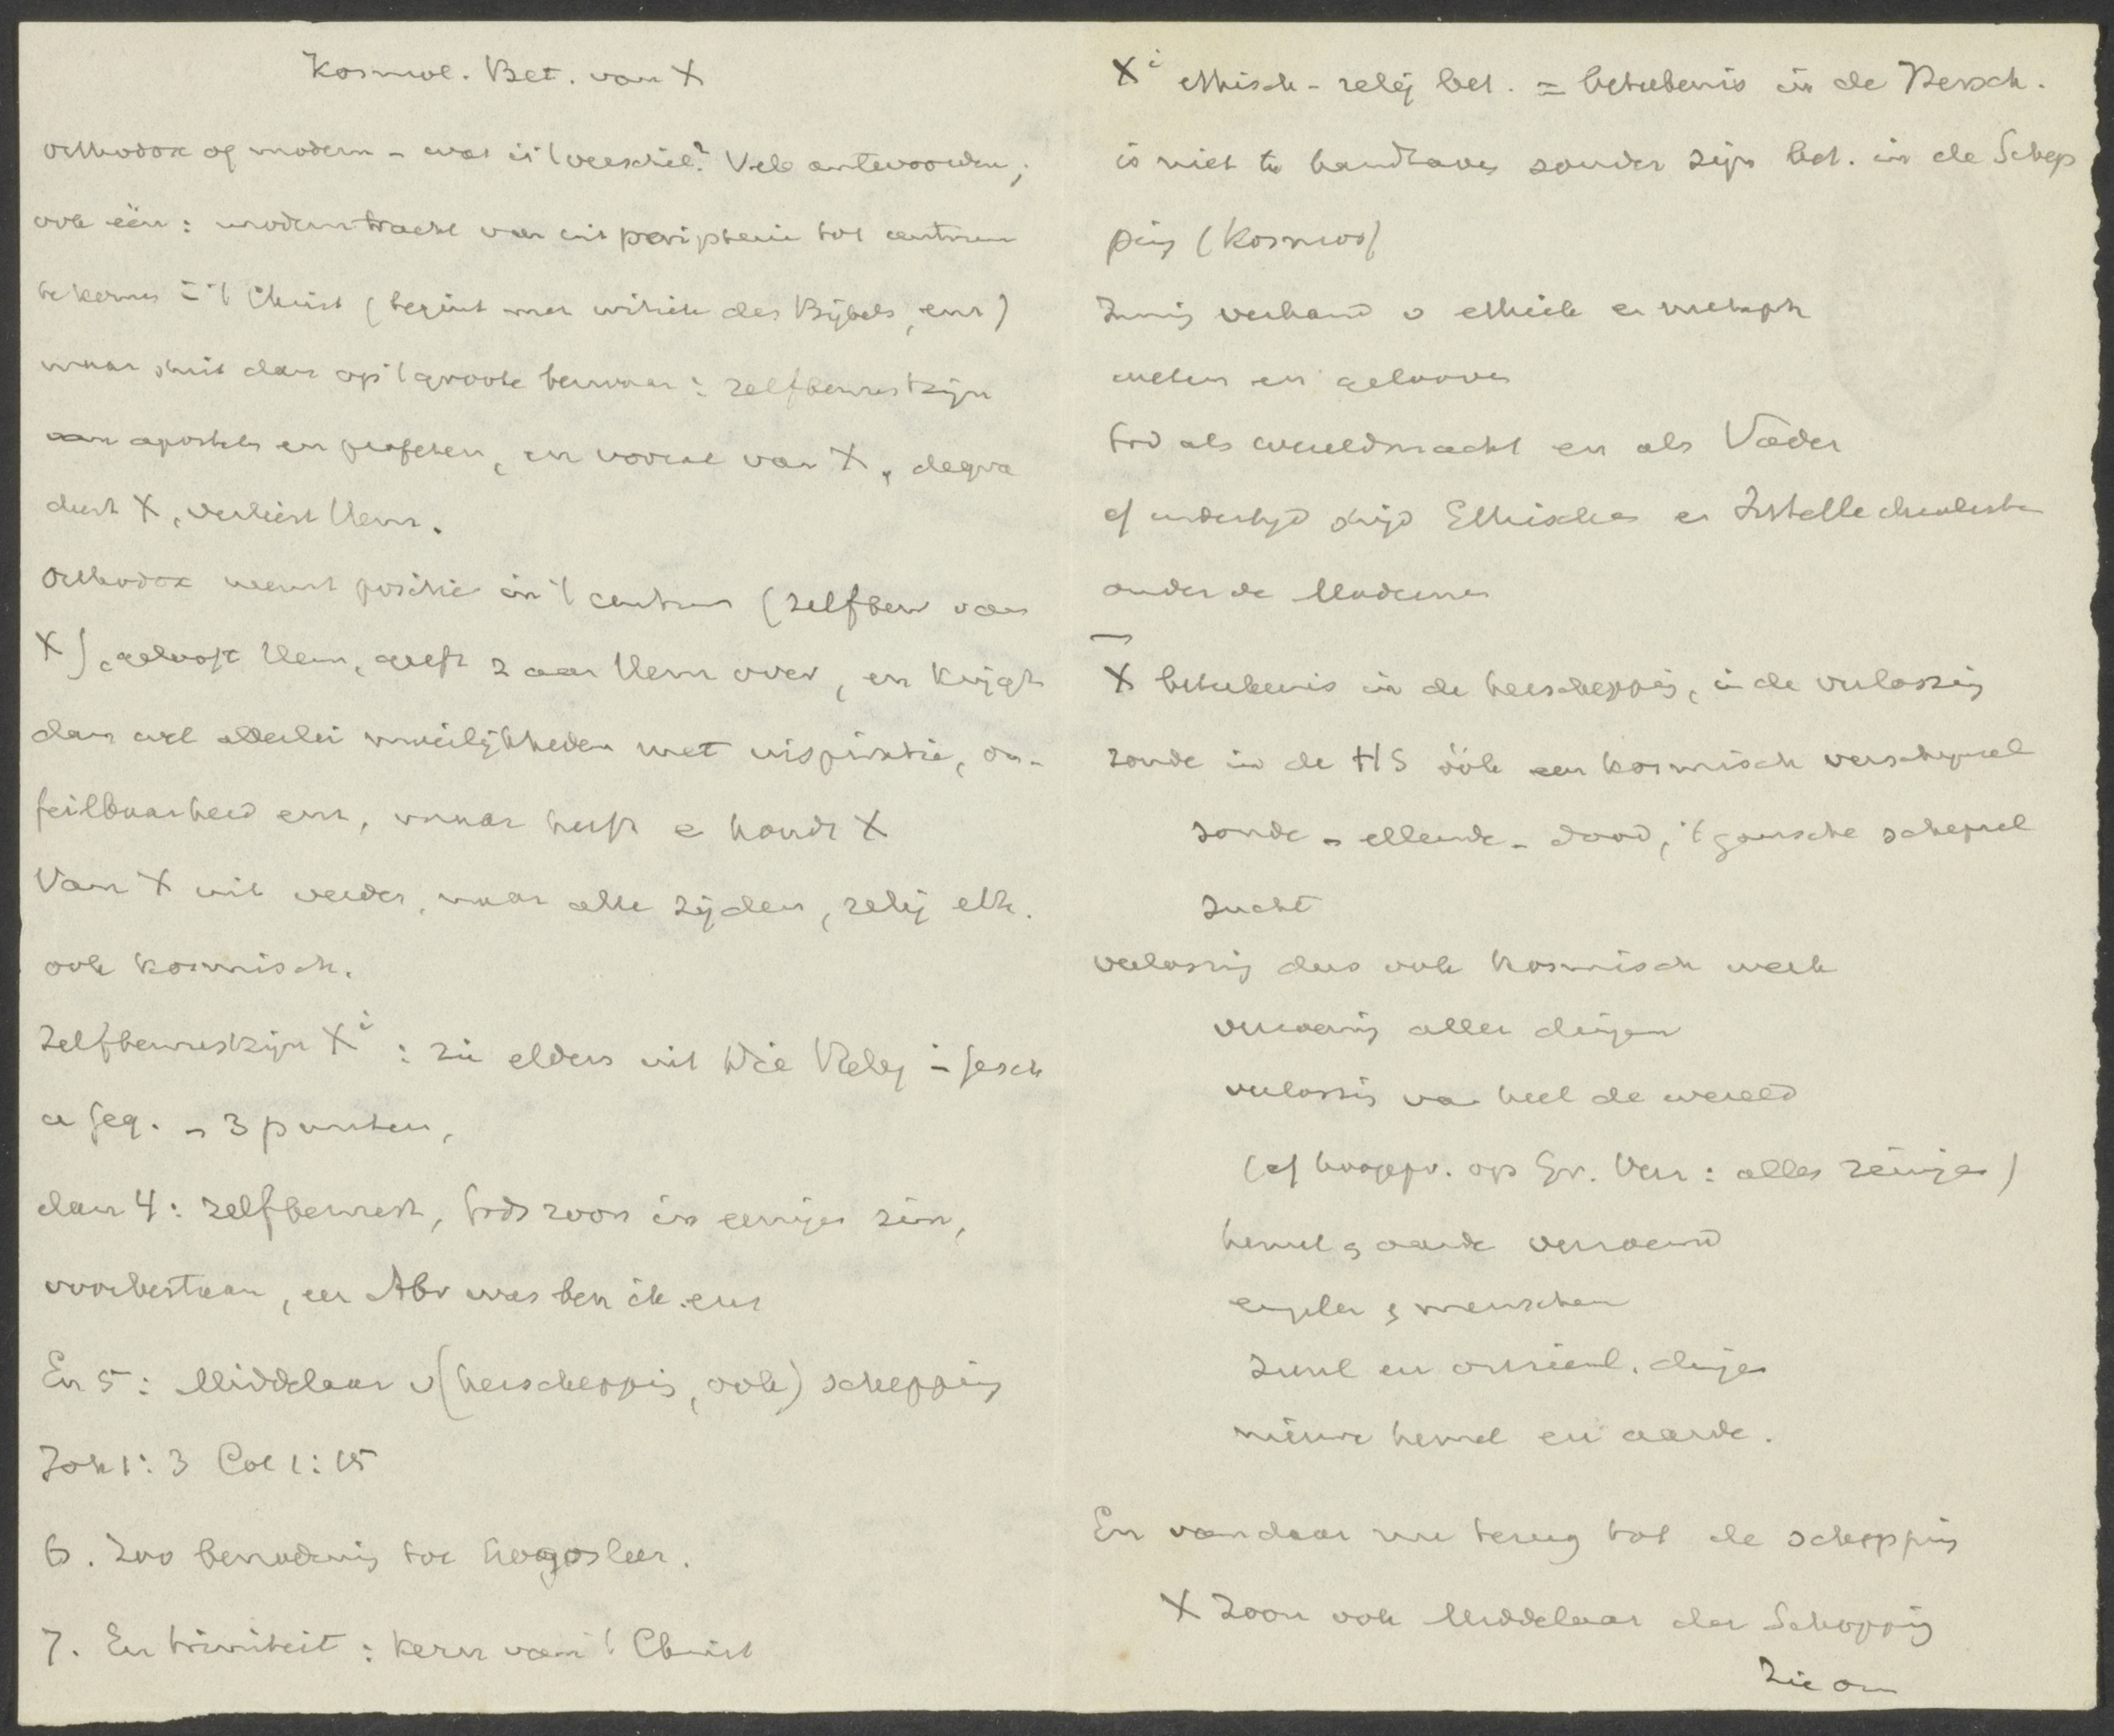 Kosmol. Bet. van X
Orthodox of modern – wat is 't verschil? Vele antwoorden;
ook één: modern tracht van uit peripherie tot centrum
te komen in 't Christ (begint met critiek des Bijbels, enz)
maar stuit dan op 't groote bezwaar: zelfbewustzijn
van apostelen en profeten, en vooral van X, degra
deert X, verliest Hem.
Orthodox neemt positie in 't centrum (zelfbew van
X), gelooft Hem, geeft z aan Hem over, en krijgt
dan wel allerlei moeilijkheden met inspiratie, on-
feilbaarheid enz, maar heeft en houdt X
Van X uit verder, naar alle zijden, relig eth.
ook kosmisch.
Zelfbewustzijn Xi : zie elders uit Relig – Gesch
a seq. – 3 punten,
dan 4: zelfbewust, Gods zoon in eenigen zin,
voorbestaan, eer Abr was ben ik. enz
En 5: Middelaar v (herschepping, ook) schepping
Joh 1:3 Col 1:15
6. Zoo benadering tot Logosleer.
7. En triniteit: kern van 't Christ
Xi ethisch-relig bet. = beteekenis in de Hersch.
is niet te handhaven zonder zijn bet. in de Schep
ping (Kosmos)
Innig verband v ethiek en metaph
weten en gelooven
God als wereldmacht en als Vader
cf indertijd strijd Ethischen en Intellectualisten
onder de Modernen
X beteekenis in de herschepping, in de verlossing
zonde in de HS óók een kosmisch verschijnsel
zonde – ellende – dood, 't gansche schepsel
zucht
verlossing dus ook kosmisch werk
verzoening aller dingen
verlossing van heel de wereld
(cf hoogepr. op Gr. Verz: alles reinigen)
hemel & aarde verzoend
engelen & menschen
zienl en onzienl. dingen
nieuwe hemel en aarde.
En vandaar nu terug tot de schepping
X Zoon ook Middelaar der Schepping
Zie om